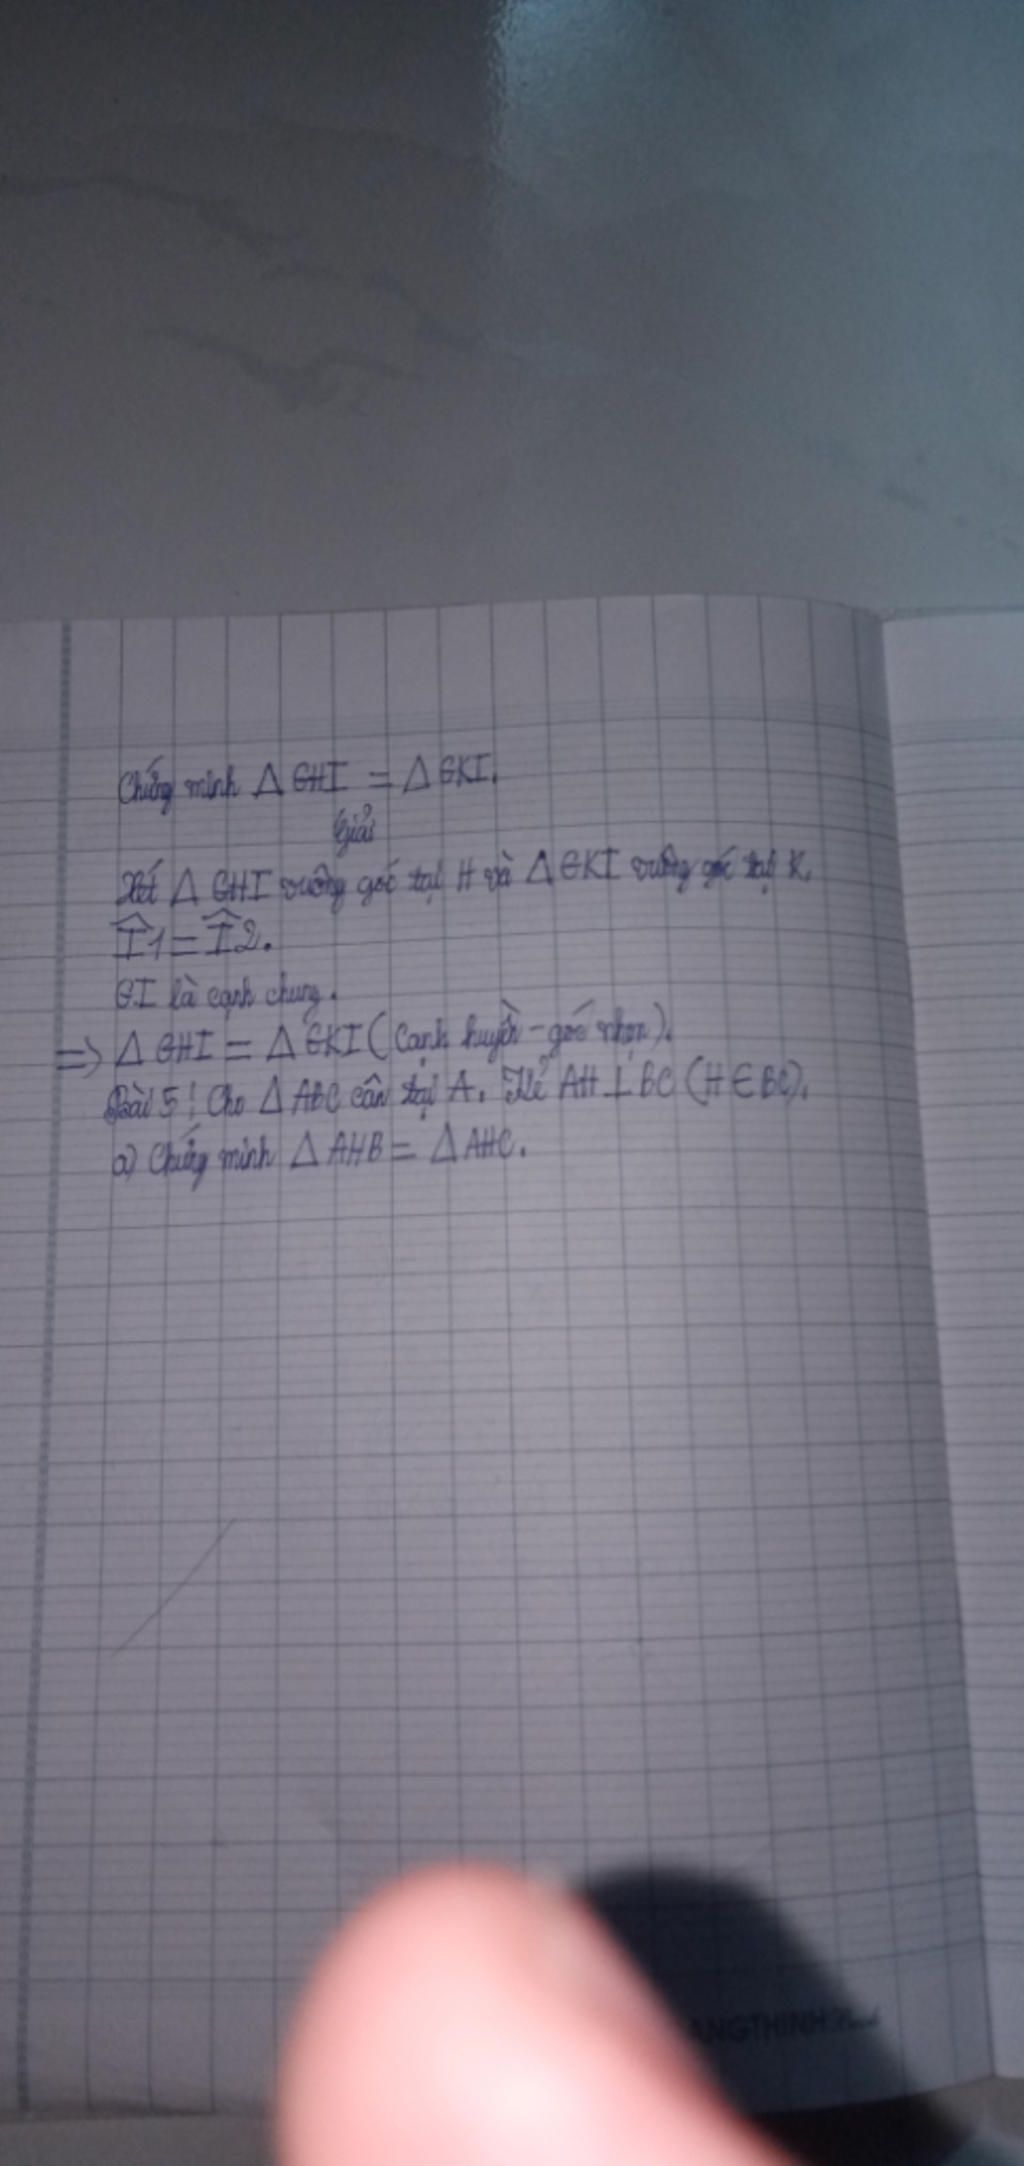 Chứng minh Δ GHI = Δ GKI.
Giải
Xét Δ GHI vuông góc tại H và Δ GKI vuông góc tại K.
Î1 = Î2.
GI là cạnh chung.
=> Δ GHI = Δ GKI (cạnh huyền - góc nhọn).
Bài 5: Cho Δ ABC cân tại A. Kẻ AH ⊥ BC (H ∈ BC).
a) Chứng minh Δ AHB = Δ AHC.